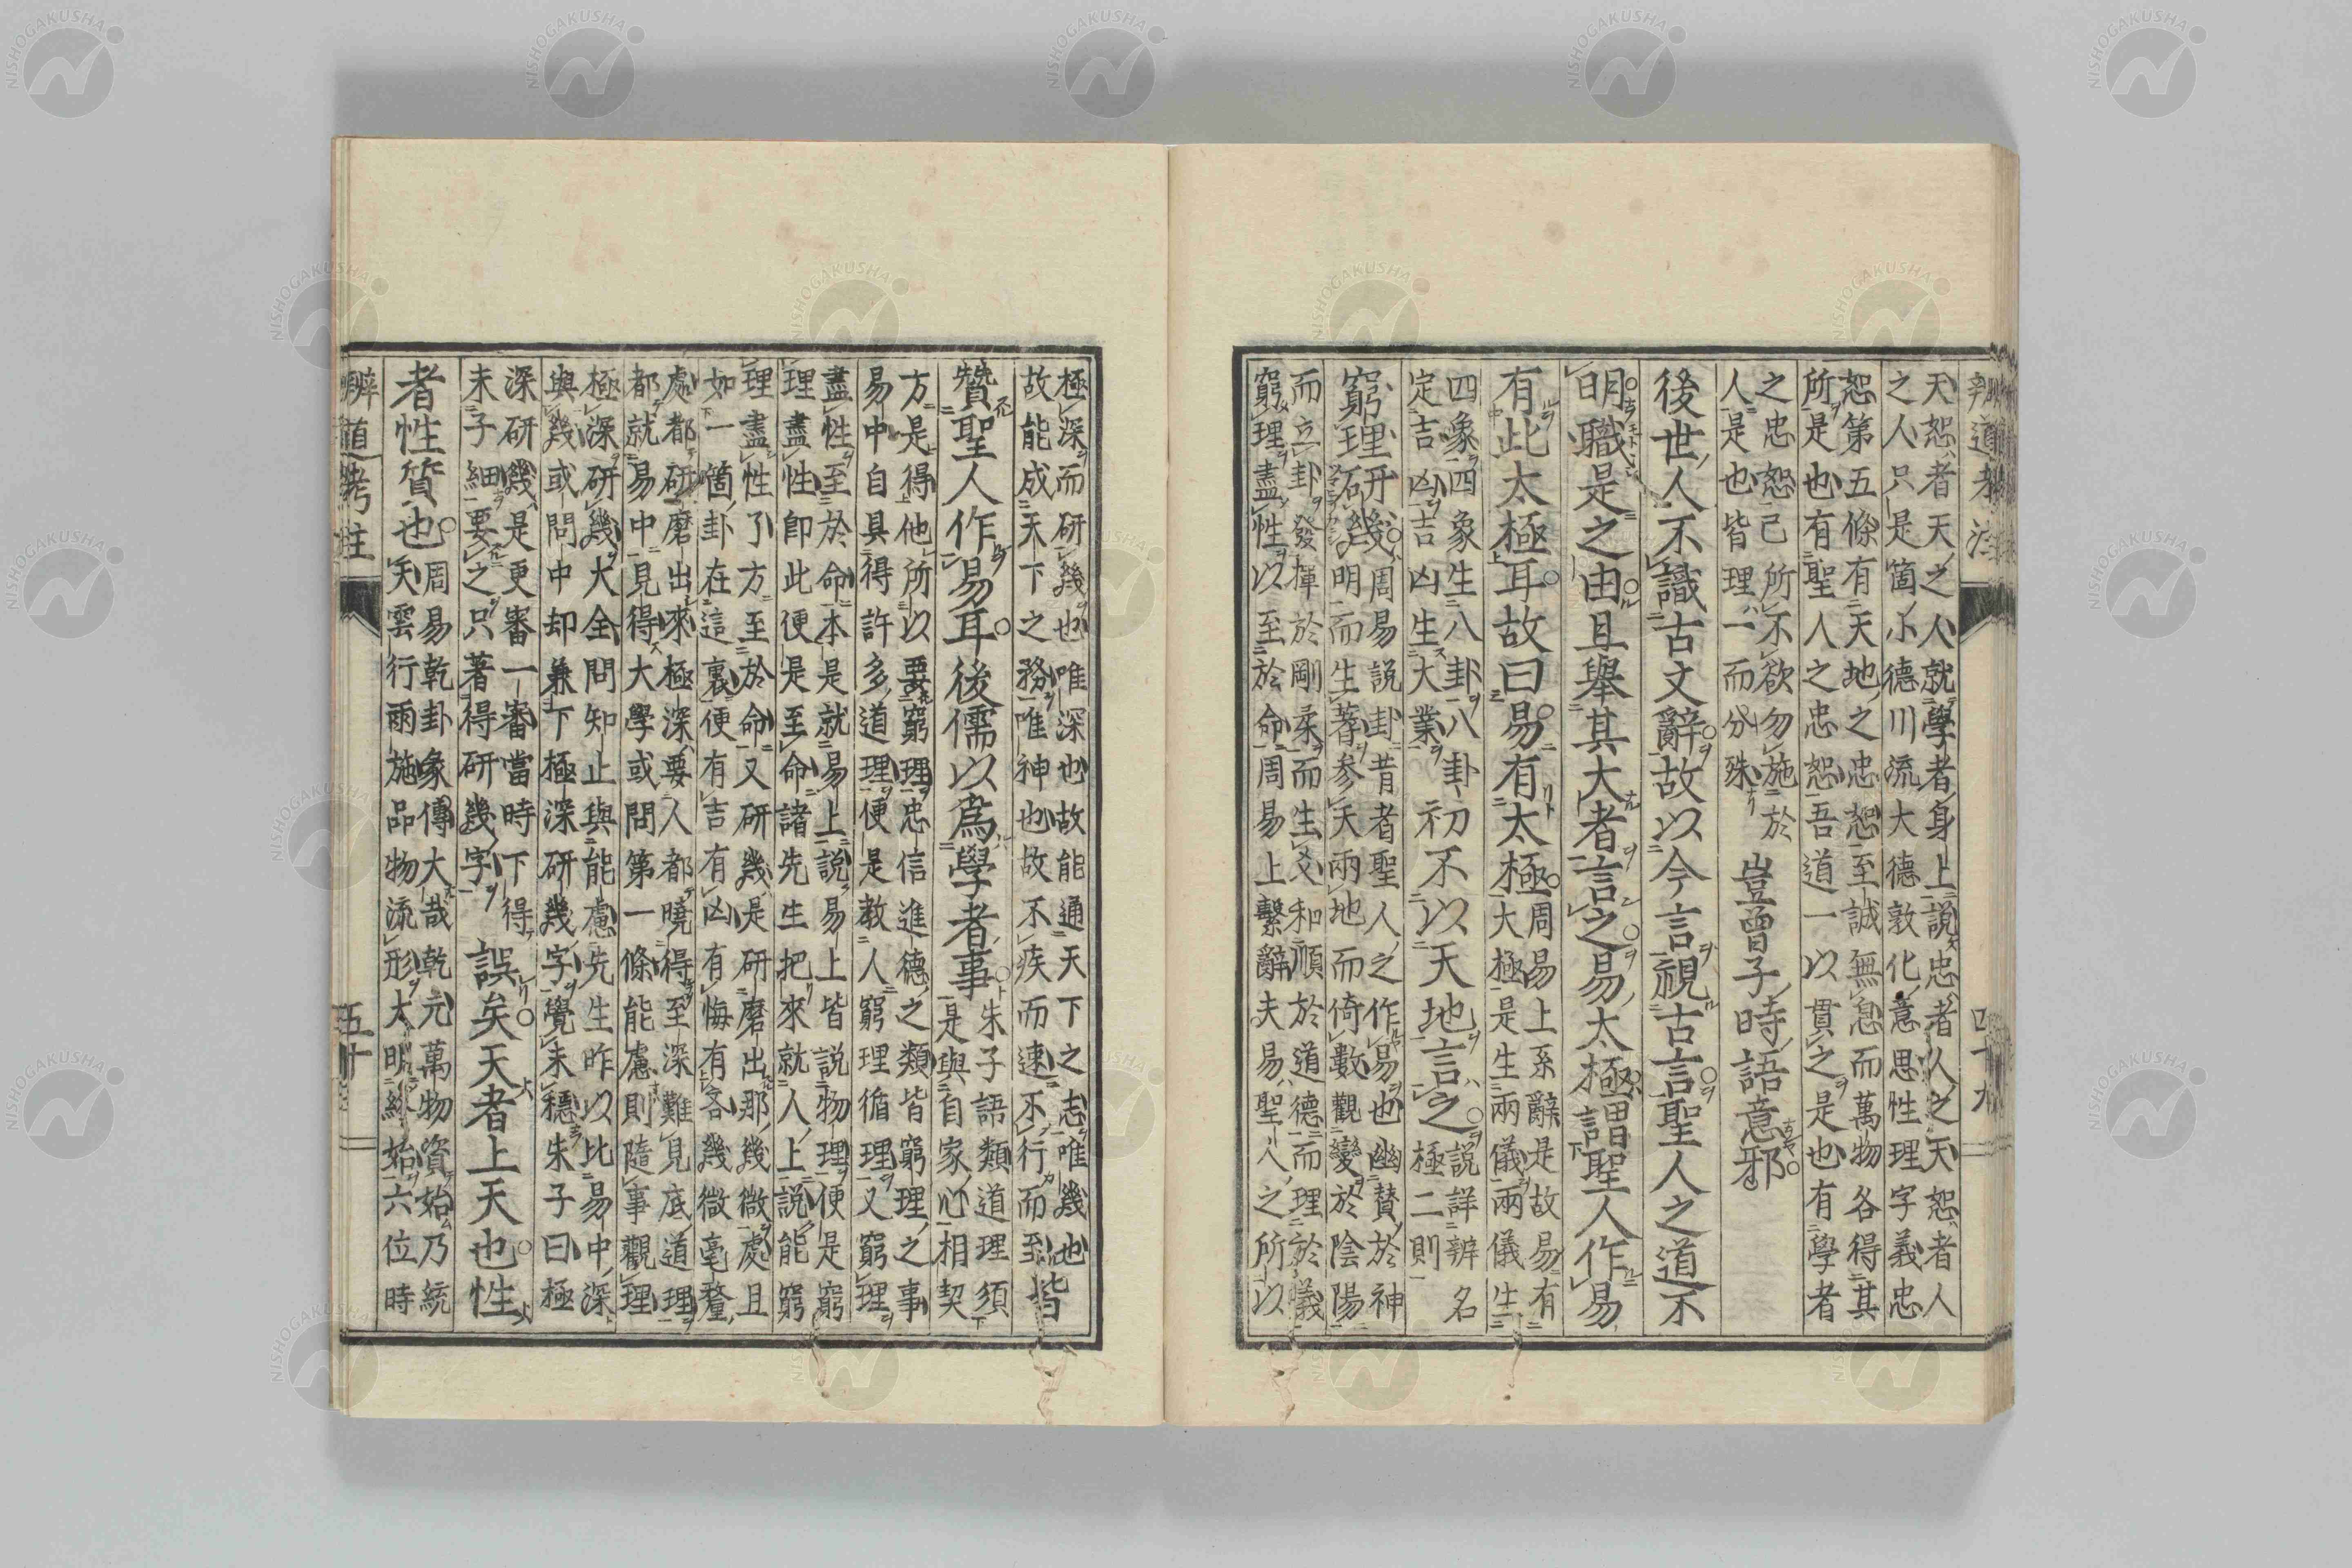 辨道考注
四十九
天恕者天之人就學者身上說忠者人之天恕者人
之人只是箇小德川流大德敦化意思性理字義忠
恕第五條有天地之忠恕至誠無息而萬物各得其
所是也有聖人之忠恕吾道一以貫之是也有學者
之忠恕己所不欲勿施於
人是也皆理一而分殊
豈曾子時語意邪
後世人不識古文辭故以今言視古言聖人之道不
明職是之由且舉其大者言之易太極謂聖人作易
有此太極耳故曰易有太極
周易上系辭是故易有
大極是生兩儀兩儀生
四象四象生八卦八卦
定吉凶吉凶生大業
初不以天地言之
說詳辨名
極二則
窮理研幾
周易說卦昔者聖人之作易也幽贊於神
明而生蓍參天兩地而倚數觀變於陰陽
而立卦發揮於剛柔而生爻和順於道德而理於義
窮理盡性以至於命周易上繫辭夫易聖人之所以
極深而研幾也唯深也故能通天下之志唯幾也
故能成天下之務唯神也故不疾而速不行而至
皆
贊聖人作易耳後儒以爲學者事
朱子語類道理須
是與自家心相契
方是得他所以要窮理忠信進德之類皆窮理之事
易中自具得許多道理便是教人窮理循理又窮理
盡性至於命本是就易上說易上皆說物理便是窮
理盡性卽此便是至命諸先生把來就人上說能窮
理盡性了方至於命又研幾是研磨出那幾微處且
如一箇卦在這裏便有吉有凶有悔有吝幾微毫釐
處都研磨出來極深要人都曉得至深難見底道理
都就易中見得大學或問第一條能慮則隨事觀理
極深研幾大全問知止與能慮先生昨以比易中深
與幾或問中却兼下極深研幾字覺未穩朱子曰極
深研幾是更審一審當時下得
未子細要之只著得研幾字
誤矣天者上天也性
者性質也
周易乾卦彖傳大哉乾元萬物資始乃統
天雲行雨施品物流形大明終始六位時
辨道考注
五十